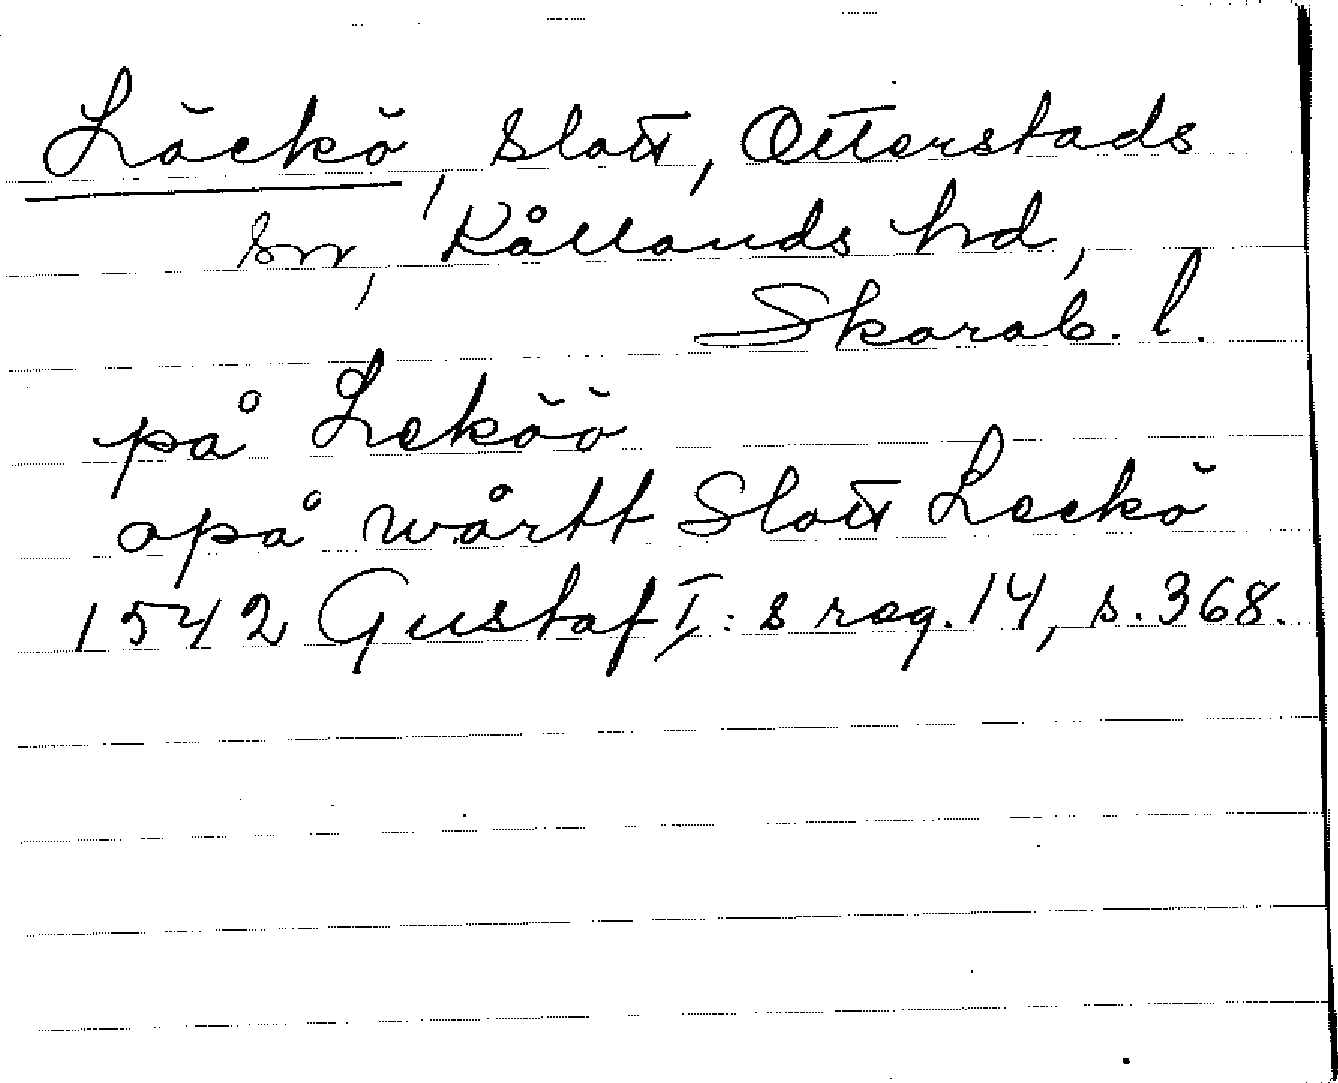 Läckö, slott, Otterstads
sn, Kållands hd,
Skarab. l.
på Leköö
opå wårtt Slott Leckö
1542 Gustaf I:s reg. 14, s. 368.